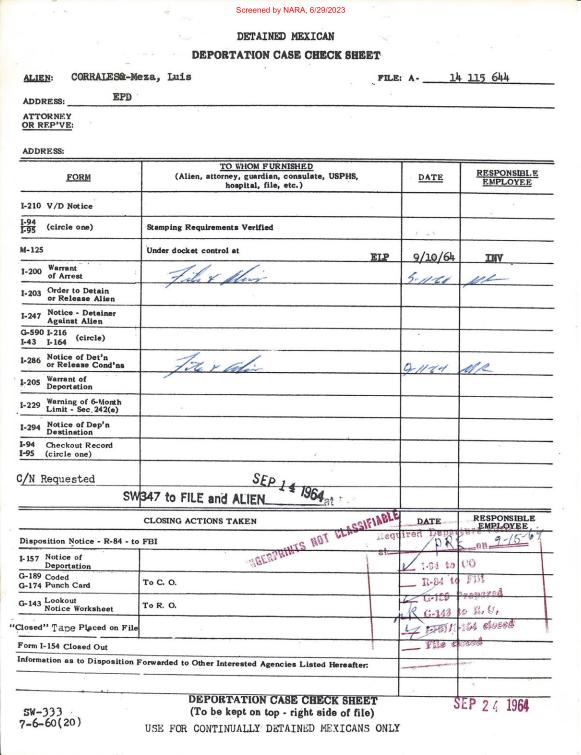 Screened by NARA, 6/29/2023
DETAINED MEXICAN
DEPORTATION CASE CHECK SHEET
ALIEN: CORRALES&-Meza, Luis FILE: A- 14 115 644
ADDRESS: EPD
ATTORNEY
OR REP'VE:
ADDRESS:
FORM TO WHOM FURNISHED (Alien, attorney, guardian, consulate, USPHS, hospital, file, etc.) DATE RESPONSIBLE EMPLOYEE
I-210 V/D Notice
I-94 I-95 (circle one) Stamping Requirements Verified
M-125 Under docket control at ELP 9/10/64 INV
I-200 Warrant of Arrest File & Alien 9-11-64 MR
I-203 Order to Detain or Release Alien
I-247 Notice - Detainer Against Alien
G-590 I-216
I-43 I-164 (circle)
I-286 Notice of Det'n or Release Cond'ns File & Alien 9-11-64 MR
I-205 Warrant of Deportation
I-229 Warning of 6-Month Limit - Sec. 242(e)
I-294 Notice of Dep'n Destination
I-94 Checkout Record
I-95 (circle one)
C/N Requested SEP 14 1964
SW347 to FILE and ALIEN at
CLOSING ACTIONS TAKEN DATE RESPONSIBLE EMPLOYEE
FINGERPRINTS NOT CLASSIFIABLE
Required Departure
Disposition Notice - R-84 - to FBI at PRE on 9-15-64
I-157 Notice of Deportation I-94 to CO
G-189 Coded
G-174 Punch Card To C. O. R-84 to FBI
G-189 Prepared
G-143 Lookout Notice Worksheet To R. O. G-143 to R.O.
"Closed" Tape Placed on File I-154 closed
Form I-154 Closed Out File closed
Information as to Disposition Forwarded to Other Interested Agencies Listed Hereafter:
SEP 24 1964
SW-333
7-6-60(20)
DEPORTATION CASE CHECK SHEET
(To be kept on top - right side of file)
USE FOR CONTINUALLY DETAINED MEXICANS ONLY